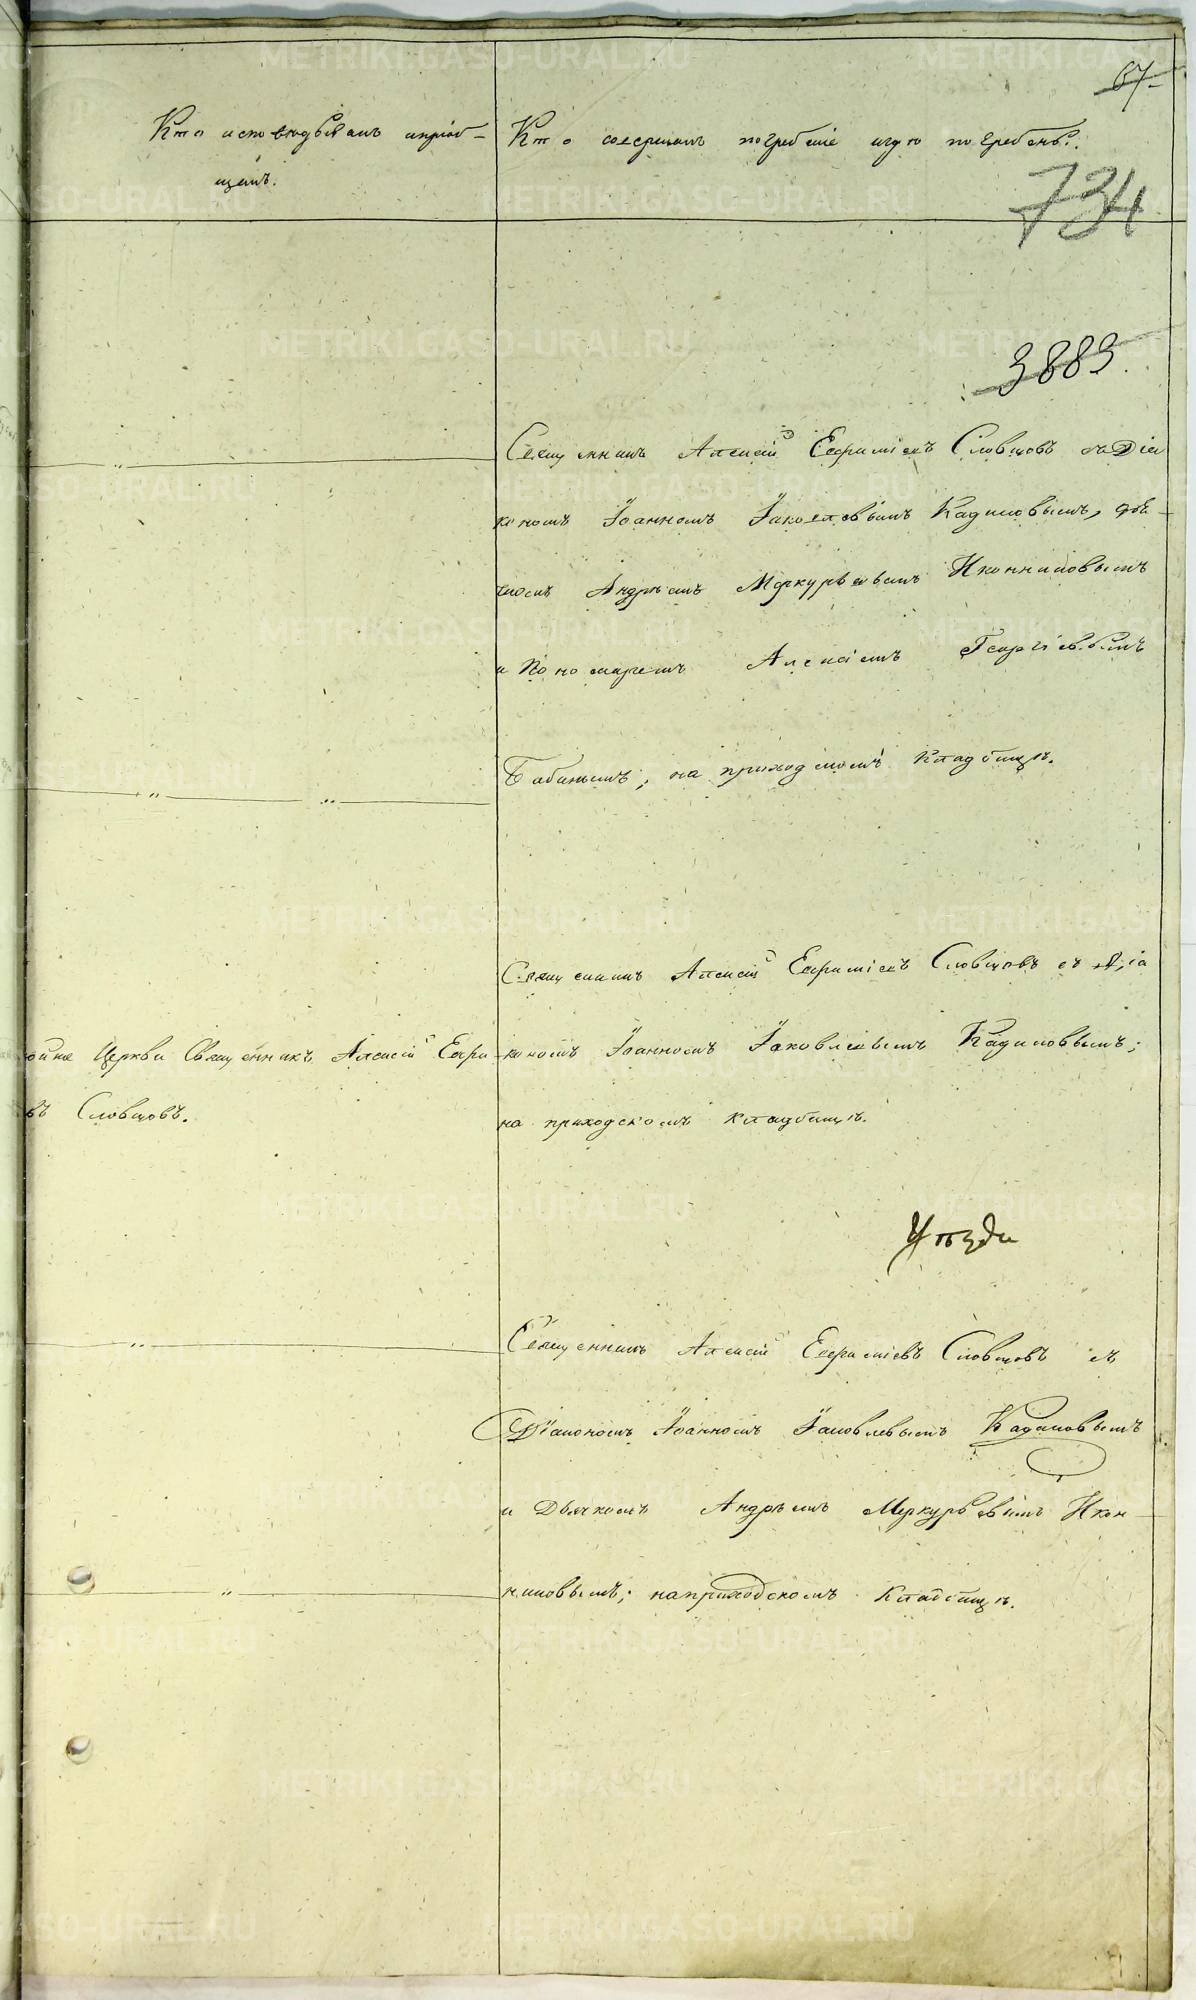 67
Кто исповѣдывалъ и пріоб-
щалъ.
Кто совершалъ погребеніе и гдѣ погребены.
734
3883.
Священникъ Алексій Евфиміевъ Словцовъ съ Діа
кономъ Іоанномъ Іаковлевымъ Кадиковымъ, дья-
чкомъ Андреемъ Меркурьевымъ Иконниковымъ
и Пономаремъ Алексіемъ Георгіевымъ
Бабинымъ, на приходскомъ кладбищѣ.
Священникъ Алексій Евфиміевъ Словцовъ съ Діа
кономъ Іоанномъ Іаковлевымъ Кадиковымъ;
на приходскомъ кладбищѣ.
Церкви Священникъ Алексій Евфи
въ Словцовъ.
Священникъ Алексій Евфиміевъ Словцовъ съ
Діакономъ Іоанномъ Іаковлевымъ Кадиковымъ
и Дьячкомъ Андреемъ Меркурьевымъ Икон-
никовымъ; на приходскомъ кладбищѣ.
METRIKI.GASO-URAL.RU